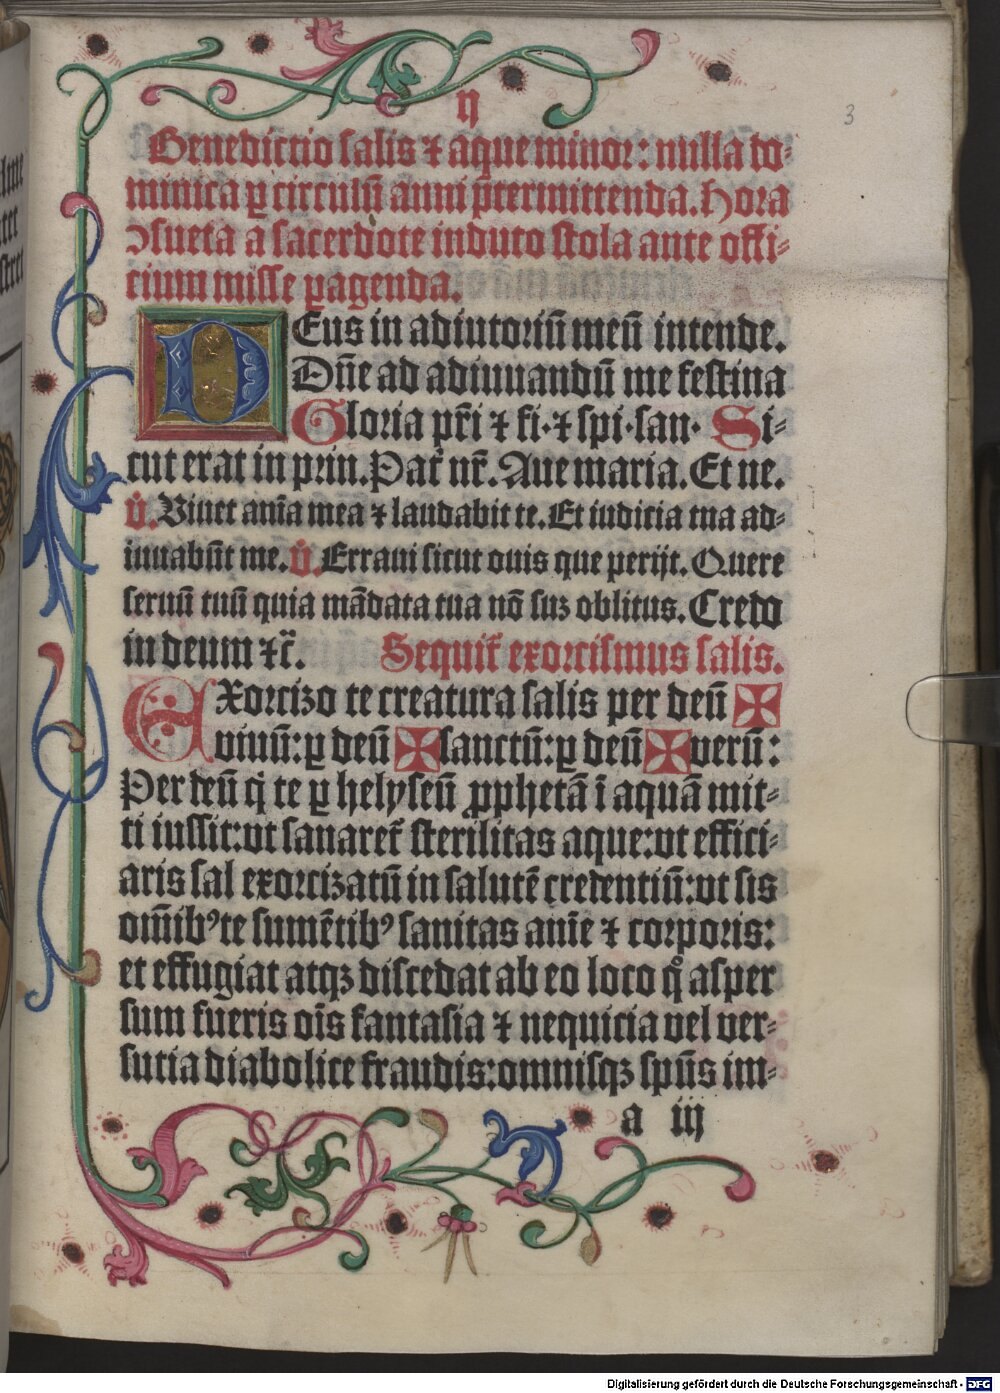 3
II
Benedictio salis ⁊ aque minor: nulla do⸗
minica ꝑ circulū anni p̄termittenda. Hora
ↄsueta a sacerdote induto stola ante offi⸗
cium misse ꝑagenda.
DEus in adiutoriū meū intende.
Dn̄e ad adiuuandū me festina
Gloria pr̄i ⁊ fi·⁊ spi·san· Si⸗
cut erat in prin. Pat᷑ nr̄. Aue maria. Et ne.
v̇. Viuet ani̅a mea ⁊ laudabit te. Et iudicia tua ad⸗
iuuabūt me. v̇. Erraui sicut ouis que perijt. Quere
seruū tuū quia mādata tua nō suꝫ oblitus. Credo
in deum ⁊c̄. Sequit᷑ exorcismus salis.
EXorcizo te creatura salis per deū ✠
viuū: ꝑ deū ✠ sanctū: ꝑ deū ✠ verū:
Per deū q̇ te ꝑ helyseū ꝓphetā ī aquā mit⸗
ti iussit: vt sanaret᷑ sterilitas aque: vt effici⸗
aris sal exorcizatū in salutē credentiū: vt sis
om̄ibꝰ te sumētibꝰ sanitas anīe ⁊ corporis:
et effugiat atqꝫ discedat ab eo loco qͦ asper
sum fueris oīs fantasia ⁊ nequicia vel ver⸗
sutia diabolice fraudis: omnisqꝫ spūs im⸗
a iij
Digitalisierung gefördert durch die Deutsche Forschungsgemeinschaft - DFG